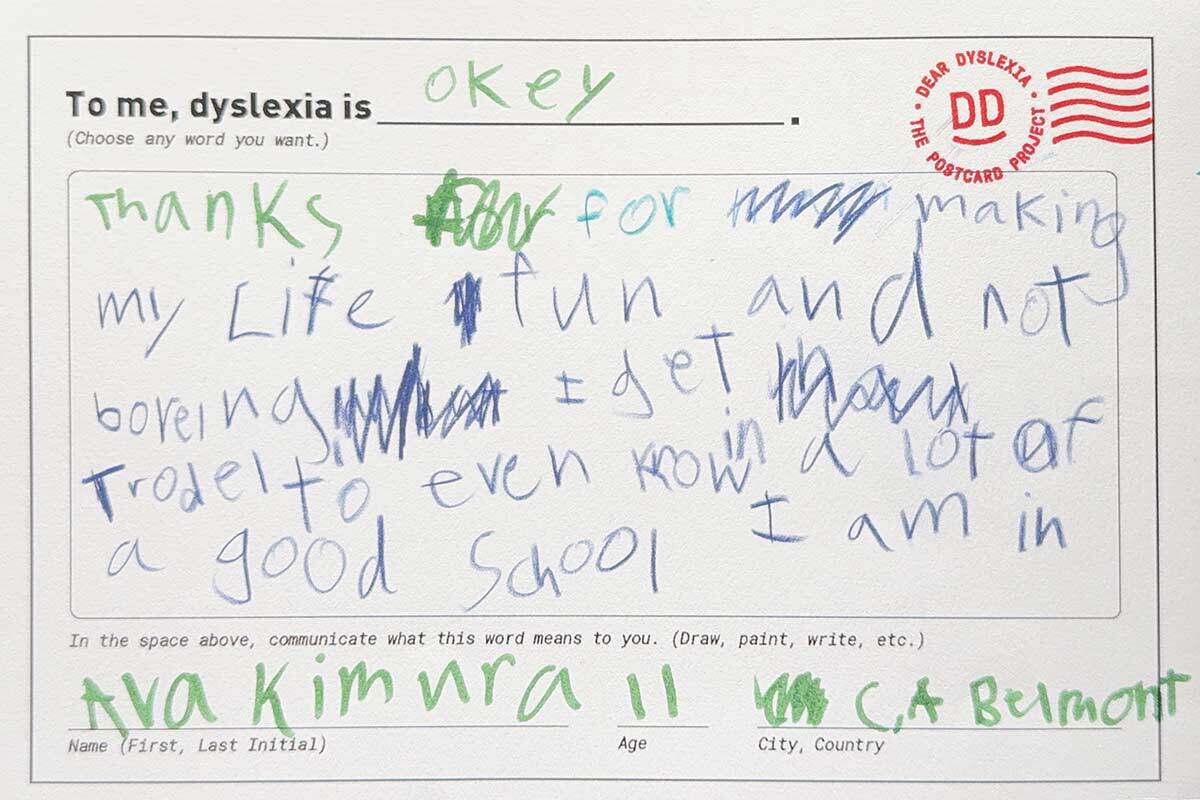 To me, dyslexia is okey.
(Choose any word you want.)
DEAR DYSLEXIA
DD
THE POSTCARD PROJECT
Thanks for making
my Life fun and not
boreing I get
Trodel to even know in a lot of
I am in
a good School
In the space above, communicate what this word means to you. (Draw, paint, write, etc.)
Ava Kimura 11 C,A Belmont
Name (First, Last Initial) Age City, Country